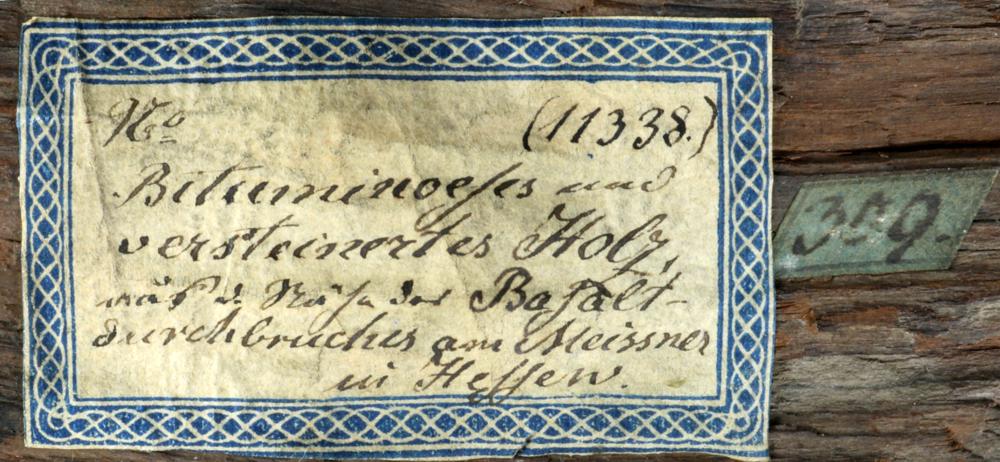 No (11338.)
Bituminoeses und
versteinertes Holz,
aus d. Nähe des Basalt-
durchbruches am Meissner
in Hessen.
309.